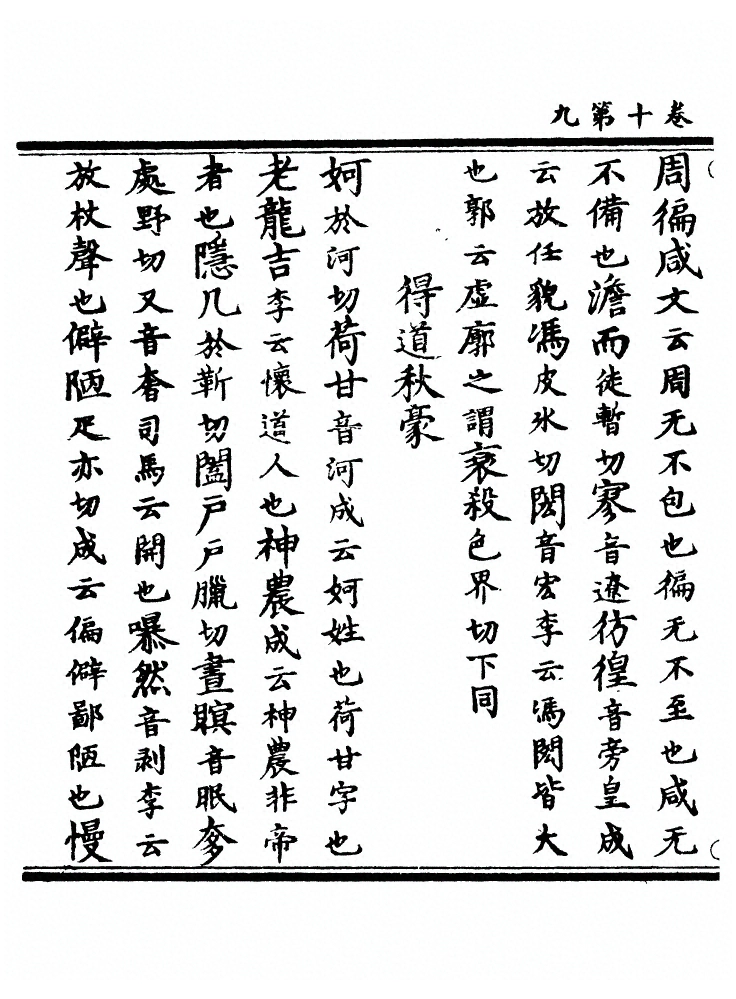 卷十第九
周徧咸文云周无不包也徧无不至也咸无
不備也澹而徒暫切寥音遼彷徨音旁皇成
云放任貌馮皮氷切閎音宏李云馮閎皆大
也郭云虛廓之謂衰殺色界切下同
得道秋豪
妸於河切荷甘音河成云妸姓也荷甘字也
老龍吉李云懷道人也神農成云神農非帝
者也隱几於靳切闔戶戶臘切晝瞑音眠奓
處野切又音奢司馬云開也嚗然音剥李云
放杖聲也僻陋疋亦切成云偏僻鄙陋也慢